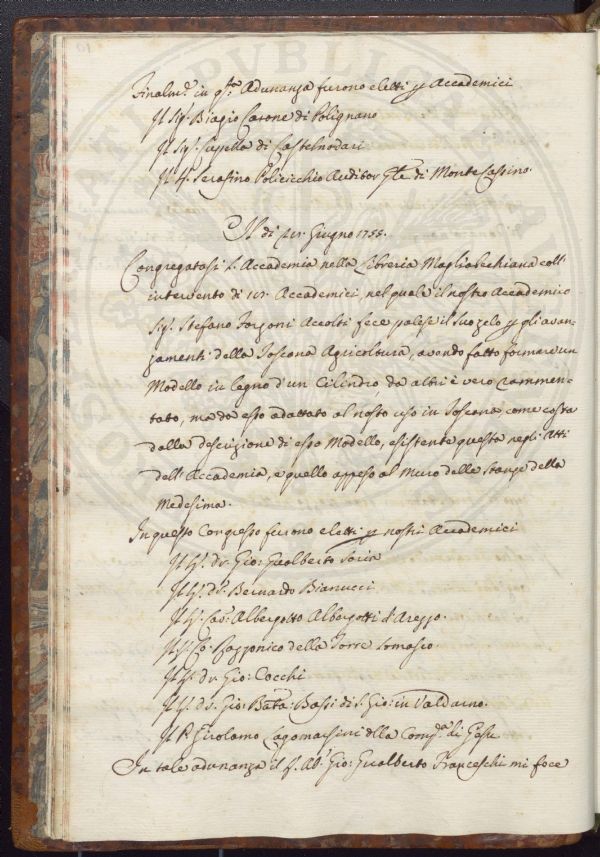 Finalm.e in q.ta Adunanza furono eletti p Accademici
Il Sig.r Biagio Carone di Polignano
Il Sig.r Cappella di Castelnodari
Il S.r Serafino Policicchio Auditor Gle di Monte Cassino.
Il di Giugno 1755.
Congregatasi l'Accademia nella Libreria Magliabechiana coll'
intervento di Accademici, nel quale il nostro Accademico
Sig.r Stefano Forzoni Accolti fece palese il suo zelo p gli avan-
zamenti della Toscana Agricoltura, avendo fatto formare un
Modello in legno d'un Cilindro, da altri è vero rammen-
tato, ma da esso adattato al nostro uso in Toscana come costa
dalla descrizione di esso Modello, esistente questa negli Atti
dell'Accademia, e quello appeso al Muro delle Stanze della
Medesima.
In questo Congresso furono eletti p nostri Accademici
Il S.r Dr. Gio: Gualberto
Il S.r Dr. Bernardo Bianucci
Il S.r Cav. Albergotto Albergotti d'Arezzo.
Il S.r Co. Rezzonico della Torre Comasco.
Il S.r Dr. Gio: Cocchi
Il S.r Dr. Gio: Batta: Bassi di S. Gio: in Valdarno.
Il P. Girolamo Lagomarsini della Comp.a di Gesù
In tale adunanza il S. Ab.e Gio: Gualberto Franceschi mi fece